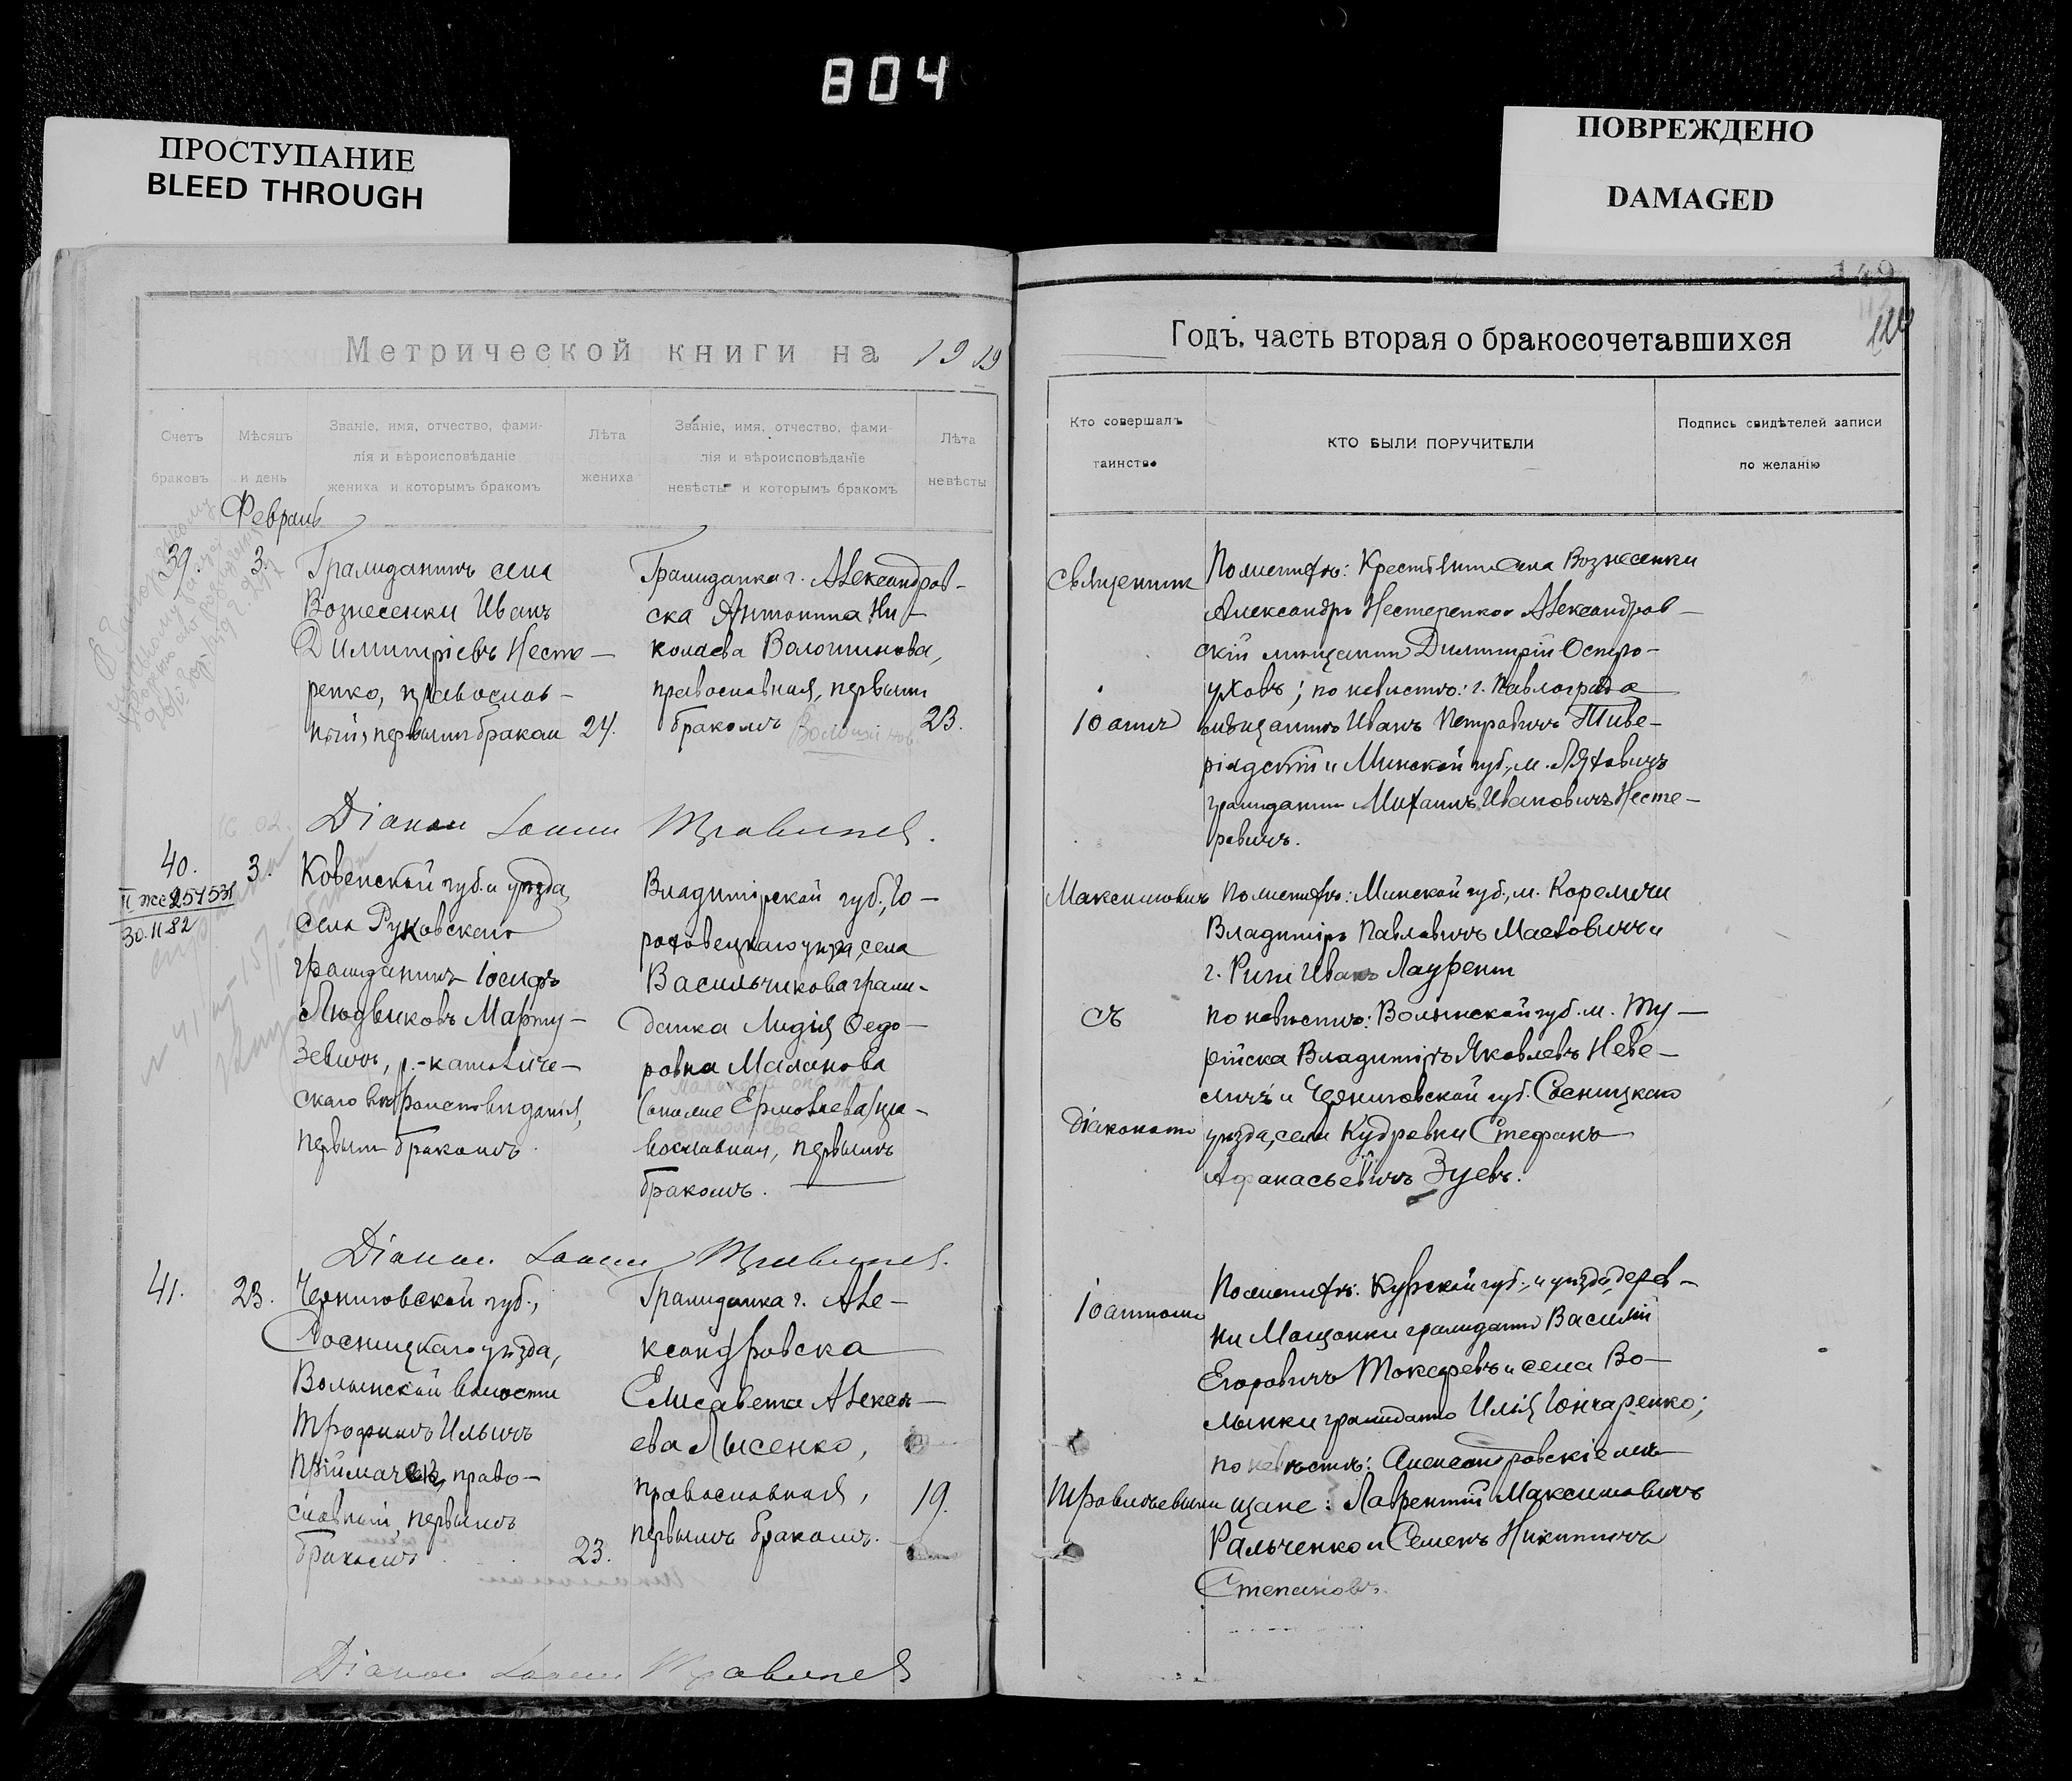 804
ПРОСТУПАНИЕ
BLEED THROUGH
ПОВРЕЖДЕНО
DAMAGED
149
Метрической книги на 1919
Счетъ браковъ
Мѣсяцъ и день
Званіе, имя, отчество, фами-
лія и вѣроисповѣданіе
жениха и которымъ бракомъ
Лѣта жениха
Званіе, имя, отчество, фами-
лія и вѣроисповѣданіе
невѣсты и которымъ бракомъ
Лѣта невѣсты
Февраль
39.
3.
Гражданинъ села
Вознесенки Иванъ
Димитріевъ Несте-
ренко, православ-
ный, первымъ браком
24.
Гражданка г. Александров-
ска Антонина Ни-
колаева Волошинова,
православная, первым
бракомъ
23.
Діакон Іоанн Травинев
40.
3.
254531
30.11.82
Ковенской губ. и уѣзда,
села Руковскаго
гражданинъ Іосифъ
Людвиковъ Марту-
зевичъ, р.-католиче-
скаго вѣроисповѣданія,
первым бракомъ.
Владимірской губ., Го-
роховецкаго уѣзда, села
Васильчикова граж-
данка Лидія Ѳедо-
ровна Малакова
(она же Ермолаева) пра-
вославная, первымъ
бракомъ.
Діакон Іоанн
41.
23.
Черниговской губ.,
Сосницкаго уѣзда,
Волынской волости
Трофимъ Ильичъ
право-
славный, первымъ
бракомъ
23.
Гражданка г. Але-
ксандровска
Елисавета Алексѣ-
ева Лысенко,
православная,
первымъ бракомъ.
19.
Діакон Іоанн
Годъ, часть вторая о бракосочетавшихся
Кто совершалъ
таинство
КТО БЫЛИ ПОРУЧИТЕЛИ
Подпись свидѣтелей записи
по желанію
Священник
Іоаннъ
Максимович
съ
Діаконом
Іоанном
По женихѣ: Крестьянин села Вознесенки
Александръ Нестеренко и Александров-
скій мѣщанин Димитрій Остро-
уховъ; по невѣстѣ: г. Павлограда
мѣщанинъ Иванъ Петровичъ Тиве-
ріадскій и Минской губ., м. Ляховичъ
гражданин Михаилъ Ивановичъ Несте-
ровичъ.
По женихѣ: Минской губ., м. Кореличи
Владиміръ Павловичъ и
г. Риги Иванъ Лаурент
по невѣстѣ: Волынской губ. м. Ту-
рійска Владиміръ Яковлевъ Неве-
личъ и Черниговской губ. Сосницкаго
уѣзда, села Кудровки Стефанъ
Афанасьевичъ Зуевъ.
По женихѣ: Курской губ., и уѣзда, дерев-
ни Мощонки гражданин Василій
Егоровичъ Токаревъ и села Во-
лынки гражданин Илья Гончаренко;
по невѣстѣ: Александровскіе мѣ-
щане: Лаврентій Максимовичъ
Ральченко и Семенъ Никитичъ
Степановъ.